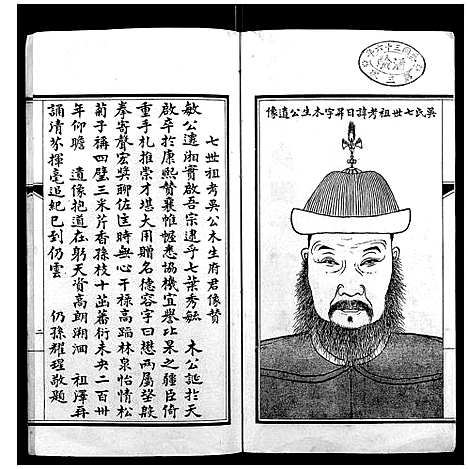 吳氏七世祖考諱日昇字木生公遺像
七世祖考吳公木生府君像贊
敏公遺湘實啟吾宗逮乎七葉秀毓 木公誕於天
啟卒於康熙贊襄帷幄悉協機宜譽比杲之疆臣倚
重手札推崇才堪大用贈名德容字曰懋兩屬望殷
拳寄聲宏獎聊佐匡時無心干祿高蹈林泉怡情松
菊子稱四璧三采芹香孫枝十茁蕃衍未央二百卅
年仰瞻 遺像抱道在躬天資高朗溯洄 祖澤再
誦清芬揮毫追紀已到仍雲 仍孫耀瑆敬題
二